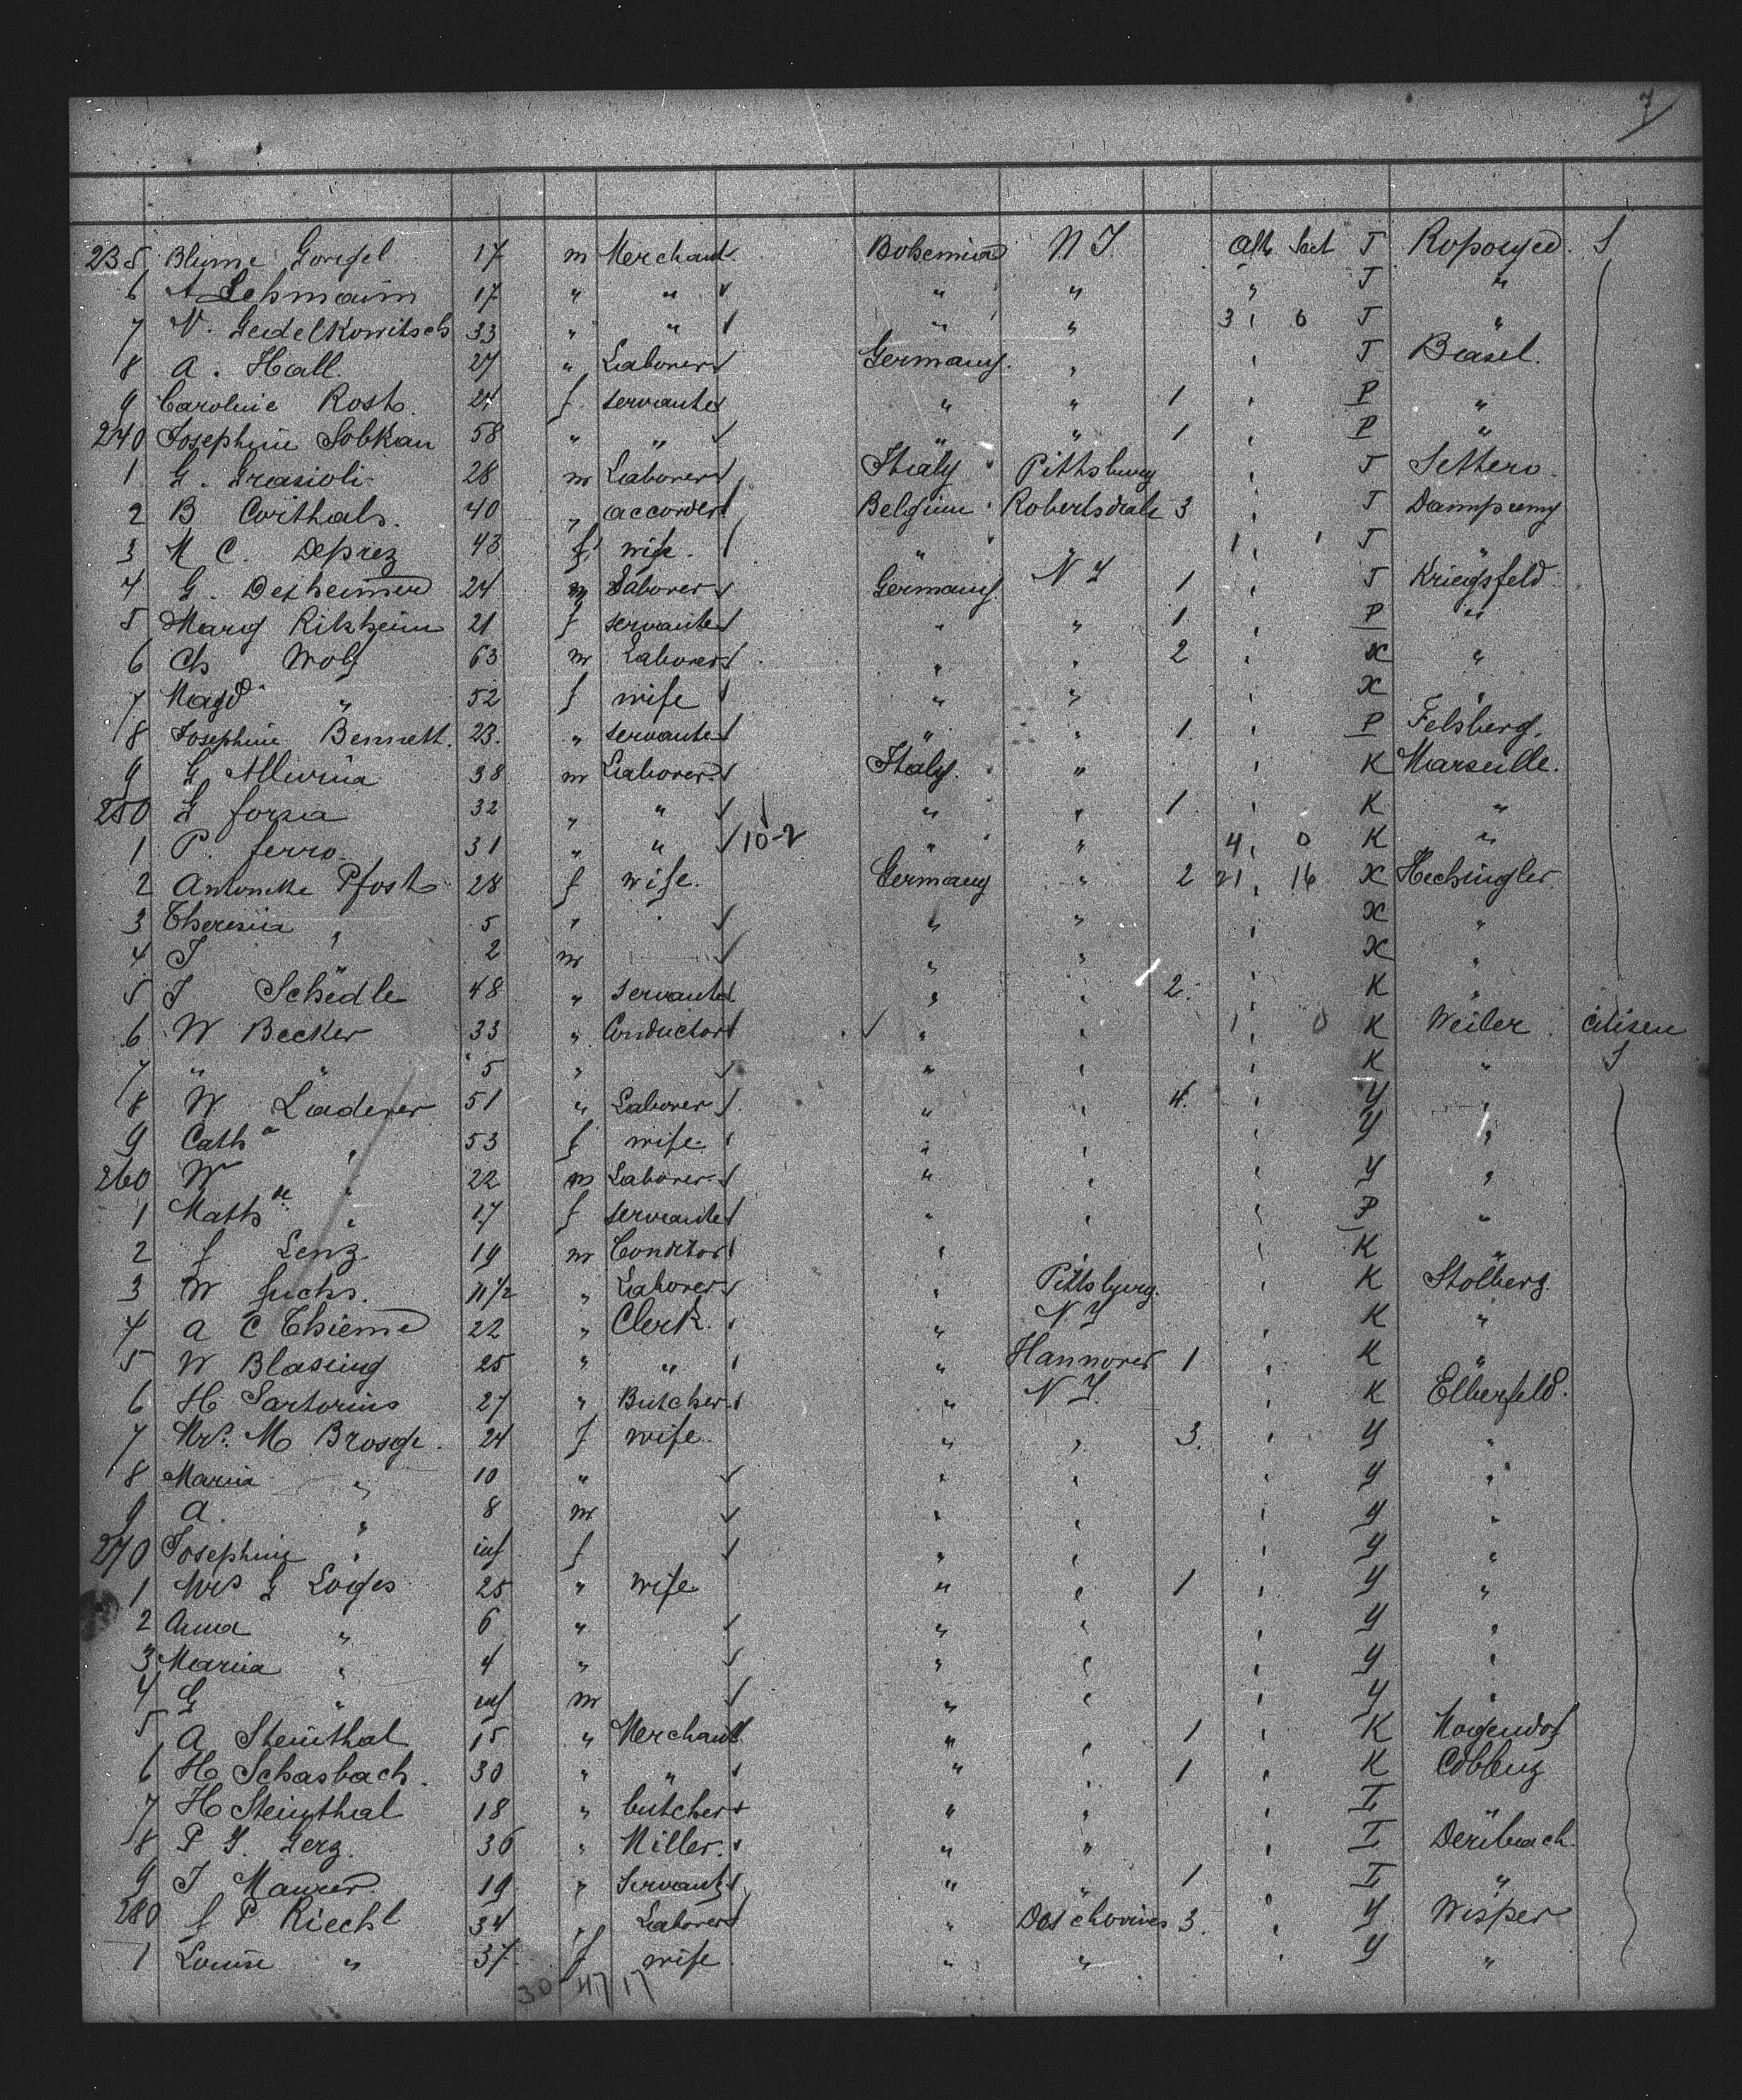 7
235 Blume Gorgel 17 m Merchant Bohemia N Y. Aft Sect J Roposyed S
6 A Lehmaim 17 " " " " " J "
7 N. Geidelkowitsch 33 " " " " 3 " 6 J "
8 A. Hall. 27 " Laborer Germany. " " J Basel.
9 Caroline Rost. 24 f servante " " 1 " P "
240 Josephine Sobkau 58 " " " " 1 " P "
1 G. Grasioli 28 m Laborer Italy Pittsburg " J Settero
2 B Corthals. 40 " accorder Belgium Robertsdale 3 " J Dampremy
3 M C. Deprez 43 f wife. " " 1 " 1 J "
4 G. Dexheimer 24 m Laborer Germany. N Y 1 " J Kriegsfeld
5 Marg Rikheim 21 f servante " " 1. " P "
6 Ch Wolf 63 m Laborer " " 2 " X "
7 Magd " 52 f wife " " " X "
8 Josephine Bennett. 23. " servante " " 1. " P Felsberg.
9 G Allivina 38 m Laborer Italy. " " K Marseille.
250 G forza 32 " " " " 1. " K "
1 P. ferro. 31 " " 10-2 " " 4 " 0 K "
2 Antonette Pfost 28 f wife. Germany " 2 21 " 16 X Hechingler.
3 Theresia " 5 " " " " X "
4 J " 2 m " " " X "
5 J Schedle 48 " servante " " 2. " K "
6 W Becker 33 " Conductor " " 1 0 K Weiler citizen
7 " " 5 " " " " K " S
8 W Laderer 51 " Laborer " " 4. " Y "
9 Cath a " 53 f wife. " " " Y "
260 W " 22 m Laborer " " " Y "
1 Math de " 17 f servante " " " P "
2 f Lenz 19 m Conditor " " " K "
3 W fuchs. 11 1/2 " Laborer " Pittsburg. " K Stolberg.
4 A C Thieme 22 " Clerk. " N Y " K "
5 W Blasing 25 " " " Hannover 1 " K "
6 H Sartorius 27 " Butcher " N Y. " K Elberfeld.
7 Mrs. M Brosge. 24 f wife. " " 3. " Y "
8 Maria " 10 " " " " Y "
9 A. " 8 m " " " Y "
270 Josephine " inf f " " " Y "
1 Mrs G Loges 25 " wife " " 1 " Y "
2 Anna " 6 " " " " Y "
3 Maria " 4 " " " " Y "
4 G " inf m " " " Y "
5 A Steinthal 15 " Merchant " " 1 " K Mogendof
6 H Schasbach. 30 " " " " 1 " K Coblenz
7 H Steinthal 18 " butcher " " " I "
8 P J. Gerz. 36 " Miller. " " " I Deribach.
9 J Maurer 19 " Servant " " 1 " I "
280 f P Riecht 34 " Laborer " 3. " Y Wisper
1 Louise " 37 f wife " " " Y "
30 47 17